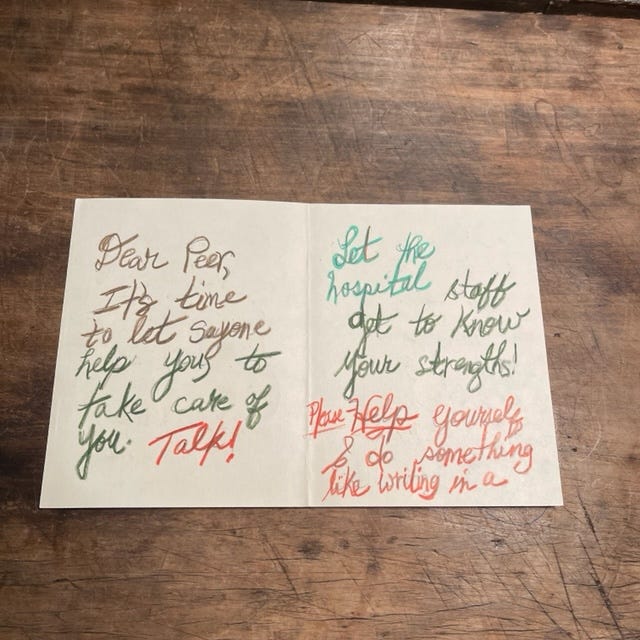 Dear Peer,
It's time
to let sayone
help you, to
take care of
you. Talk!
Let the
hospital staff
get to know
your strengths!
Please Help yourself
& do something
like writing in a